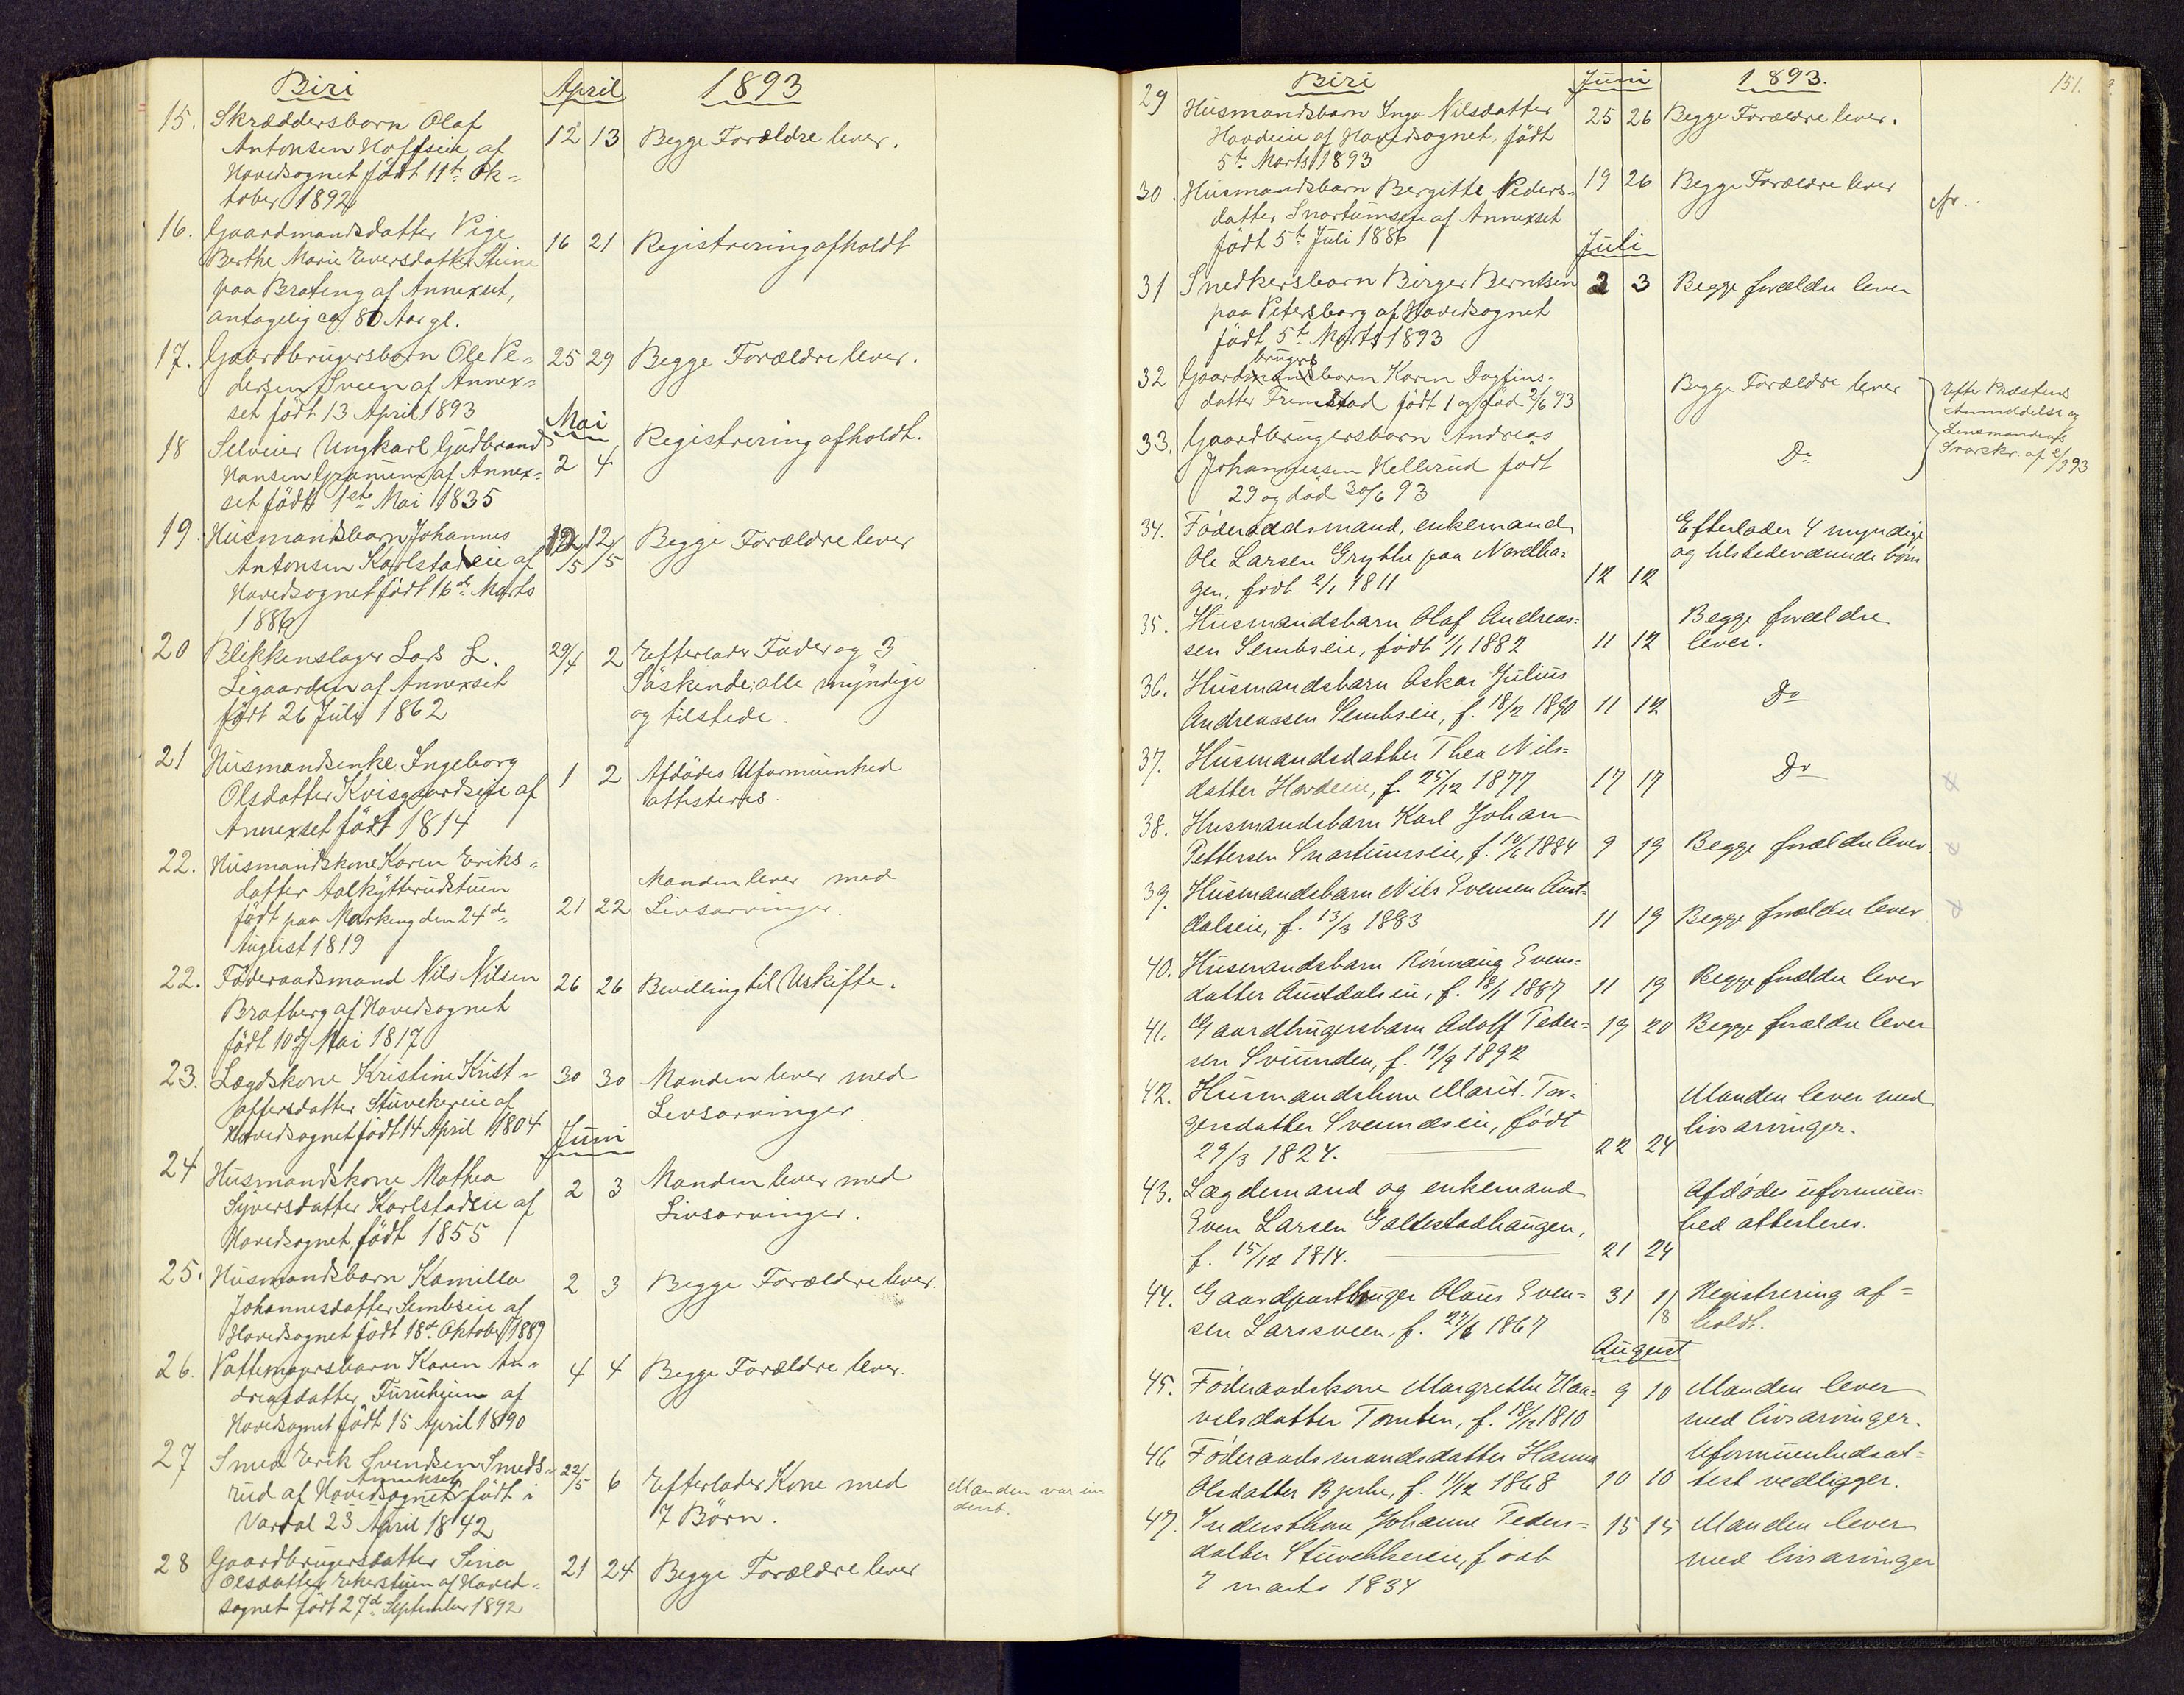 Biri
April
1893
15. Skræddersbarn Olaf
Antonsen Hoffseie af 12 13 Begge Forældre lever.
Hovedsognet født 11te Ok-
tober 1892
16. Gaardmandsdatter Pige
Berthe Marie Eversdatter Steine 16 21 Registrering afholdt
paa Brateng af Annexset,
antagelig ca 80 Aar gl.
17. Gaardbrugersbarn Ole Pe- 25 29 Begge Forældre lever.
dersen Sveen af Annex-
set født 13 April 1893
Mai
18 Selveier Ungkarl Gudbrand Registrering afholdt.
Hansen Granum af Annex- 2 4
set født 1ste Mai 1835
19. Husmandsbarn Johannes 12/5 12/5 Begge Forældre lever
Antonsen Karlstadeie af
Hovedsognet født 16de Marts
1886
20 Blikkenslager Lars L. 29/4 2 Efterlader Fader og 3
Ligaarden af Annexset Söskende; alle myndige
født 26 Juli 1862 og tilstede.
21 Husmandsenke Ingeborg
Olsdatter Kvisgaardseie af 1 2 Afdödes Uformuenhed
Annexset født 1814 attesteres.
22. Husmandskone Karen Eriks-
datter Aalkytterudstuen Manden lever med
født paa Markeng den 24de 21 22 Livsarvinger.
August 1819
22. Föderaadsmand Nils Nilsen 26 26 Bevilling til Uskifte.
Bratberg af Hovedsognet
født 10de Mai 1817
23. Lægdskone Kristine Krist- 30 30 Manden lever med
offersdatter Stuvekereie af Livsarvinger.
Hovedsognet født 14 April 1804
Juni
24 Husmandskone Mathea 2 3 Manden lever med
Syversdatter Karlstadeie af Livsarvinger.
Hovedsognet, født 1855
25. Husmandsbarn Kamilla 2 3 Begge Forældre lever.
Johannesdatter Sembseie af
Hovedsognet født 18de Oktober 1889
26. Pottemagersbarn Karen An- 4 4 Begge Forældre lever.
dreasdatter Furuheim af
Hovedsognet født 15 April 1890
27 Smed Erik Svendsen Smeds- 22/5 6 Efterlader Kone med Manden var un
Annekset
rud af Hovedsognet født i 7 Börn.
Vardal 23 April 1842
28 Gaardbrugersdatter Sina 21 24 Begge Forældre lever
Olsdatter Ekerstuen af Hoved-
sognet født 27de September 1892
Biri
Juni
1893.
151.
29 Husmandsbarn Inga Nilsdatter 25 26 Begge Forældre lever.
Hovdeie af Hovedsognet, født
5te Marts 1893
30. Husmandsbarn Bergitte Peders- 19 26 Begge Forældre lever
datter Snartumseie af Annexset
født 5te Juli 1886
Juli
31 Snedkersbarn Birger Berntsen 2 3 Begge forældre lever
paa Petersborg af Hovedsognet
født 5te Marts 1893
brugers
32 Gaardmandsbarn Karen Dagfins- Begge Forældre lever Efter Præstens
datter Fremstad født 1 og død 2/6 93 Anmeldelse og
33. Gaardbrugersbarn Andreas Do Lensmandens
Johannessen Hellerud født Svarskr. af 2/9 93
29 og død 30/6 93
34. Föderaadsmand, enkemand Efterlader 4 myndige
Ole Larsen Grythe paa Nordha- og tilstedeværende börn
gen, født 2/1 1811 12 12
35. Husmandsbarn Olaf Andreas- Begge forældre
sen Sembseie, født 1/1 1882 11 12 lever.
36. Husmandsbarn Oskar Julius
Andreassen Sembseie, f. 18/12 1890 11 12 Do
37. Husmandsdatter Thea Nils-
datter Hovdeie, f. 25/12 1877 17 17 Do
38. Husmandsbarn Karl Johan
Pettersen Snartumseie, f. 10/6 1884 9 19 Begge forældre lever.
39. Husmandsbarn Nils Evensen Aust-
dalseie, f. 13/3 1883 11 19 Begge forældre lever
40. Husmandsbarn Rönnaug Evens-
datter Austdalseie, f. 18/1 1887 11 19 Begge forældre lever
41. Gaardbrugersbarn Adolf Peder- 19 20 Begge forældre lever
sen Sviunden, f. 19/9 1892
42. Husmandskone Marit Tor- Manden lever med
gersdatter Svenneseie, født livsarvinger.
29/3 1824. 22 24
43. Lægdemand og enkemand Afdödes uformuen-
Even Larsen Galtestadhaugen, hed attesteres.
f. 15/12 1814. 21 24
44. Gaardpartbruger Olaus Even- 31 1/8 Registrering af-
sen Larssveen, f. 27/6 1867 holdt.
August
45. Föderaadskone Margrethe Haa- 9 10 Manden lever
velsdatter Tomten, f. 18/12 1810 med livsarvinger.
46 Föderaadsmandsdatter Hanna Uformuenhedsat-
Olsdatter Bjerke, f. 11/12 1868 10 10 test vedligger.
47. Inderstkone Johanne Peders- 15 15 Manden lever
datter Stuvekkereie, født med livsarvinger
7 marts 1834